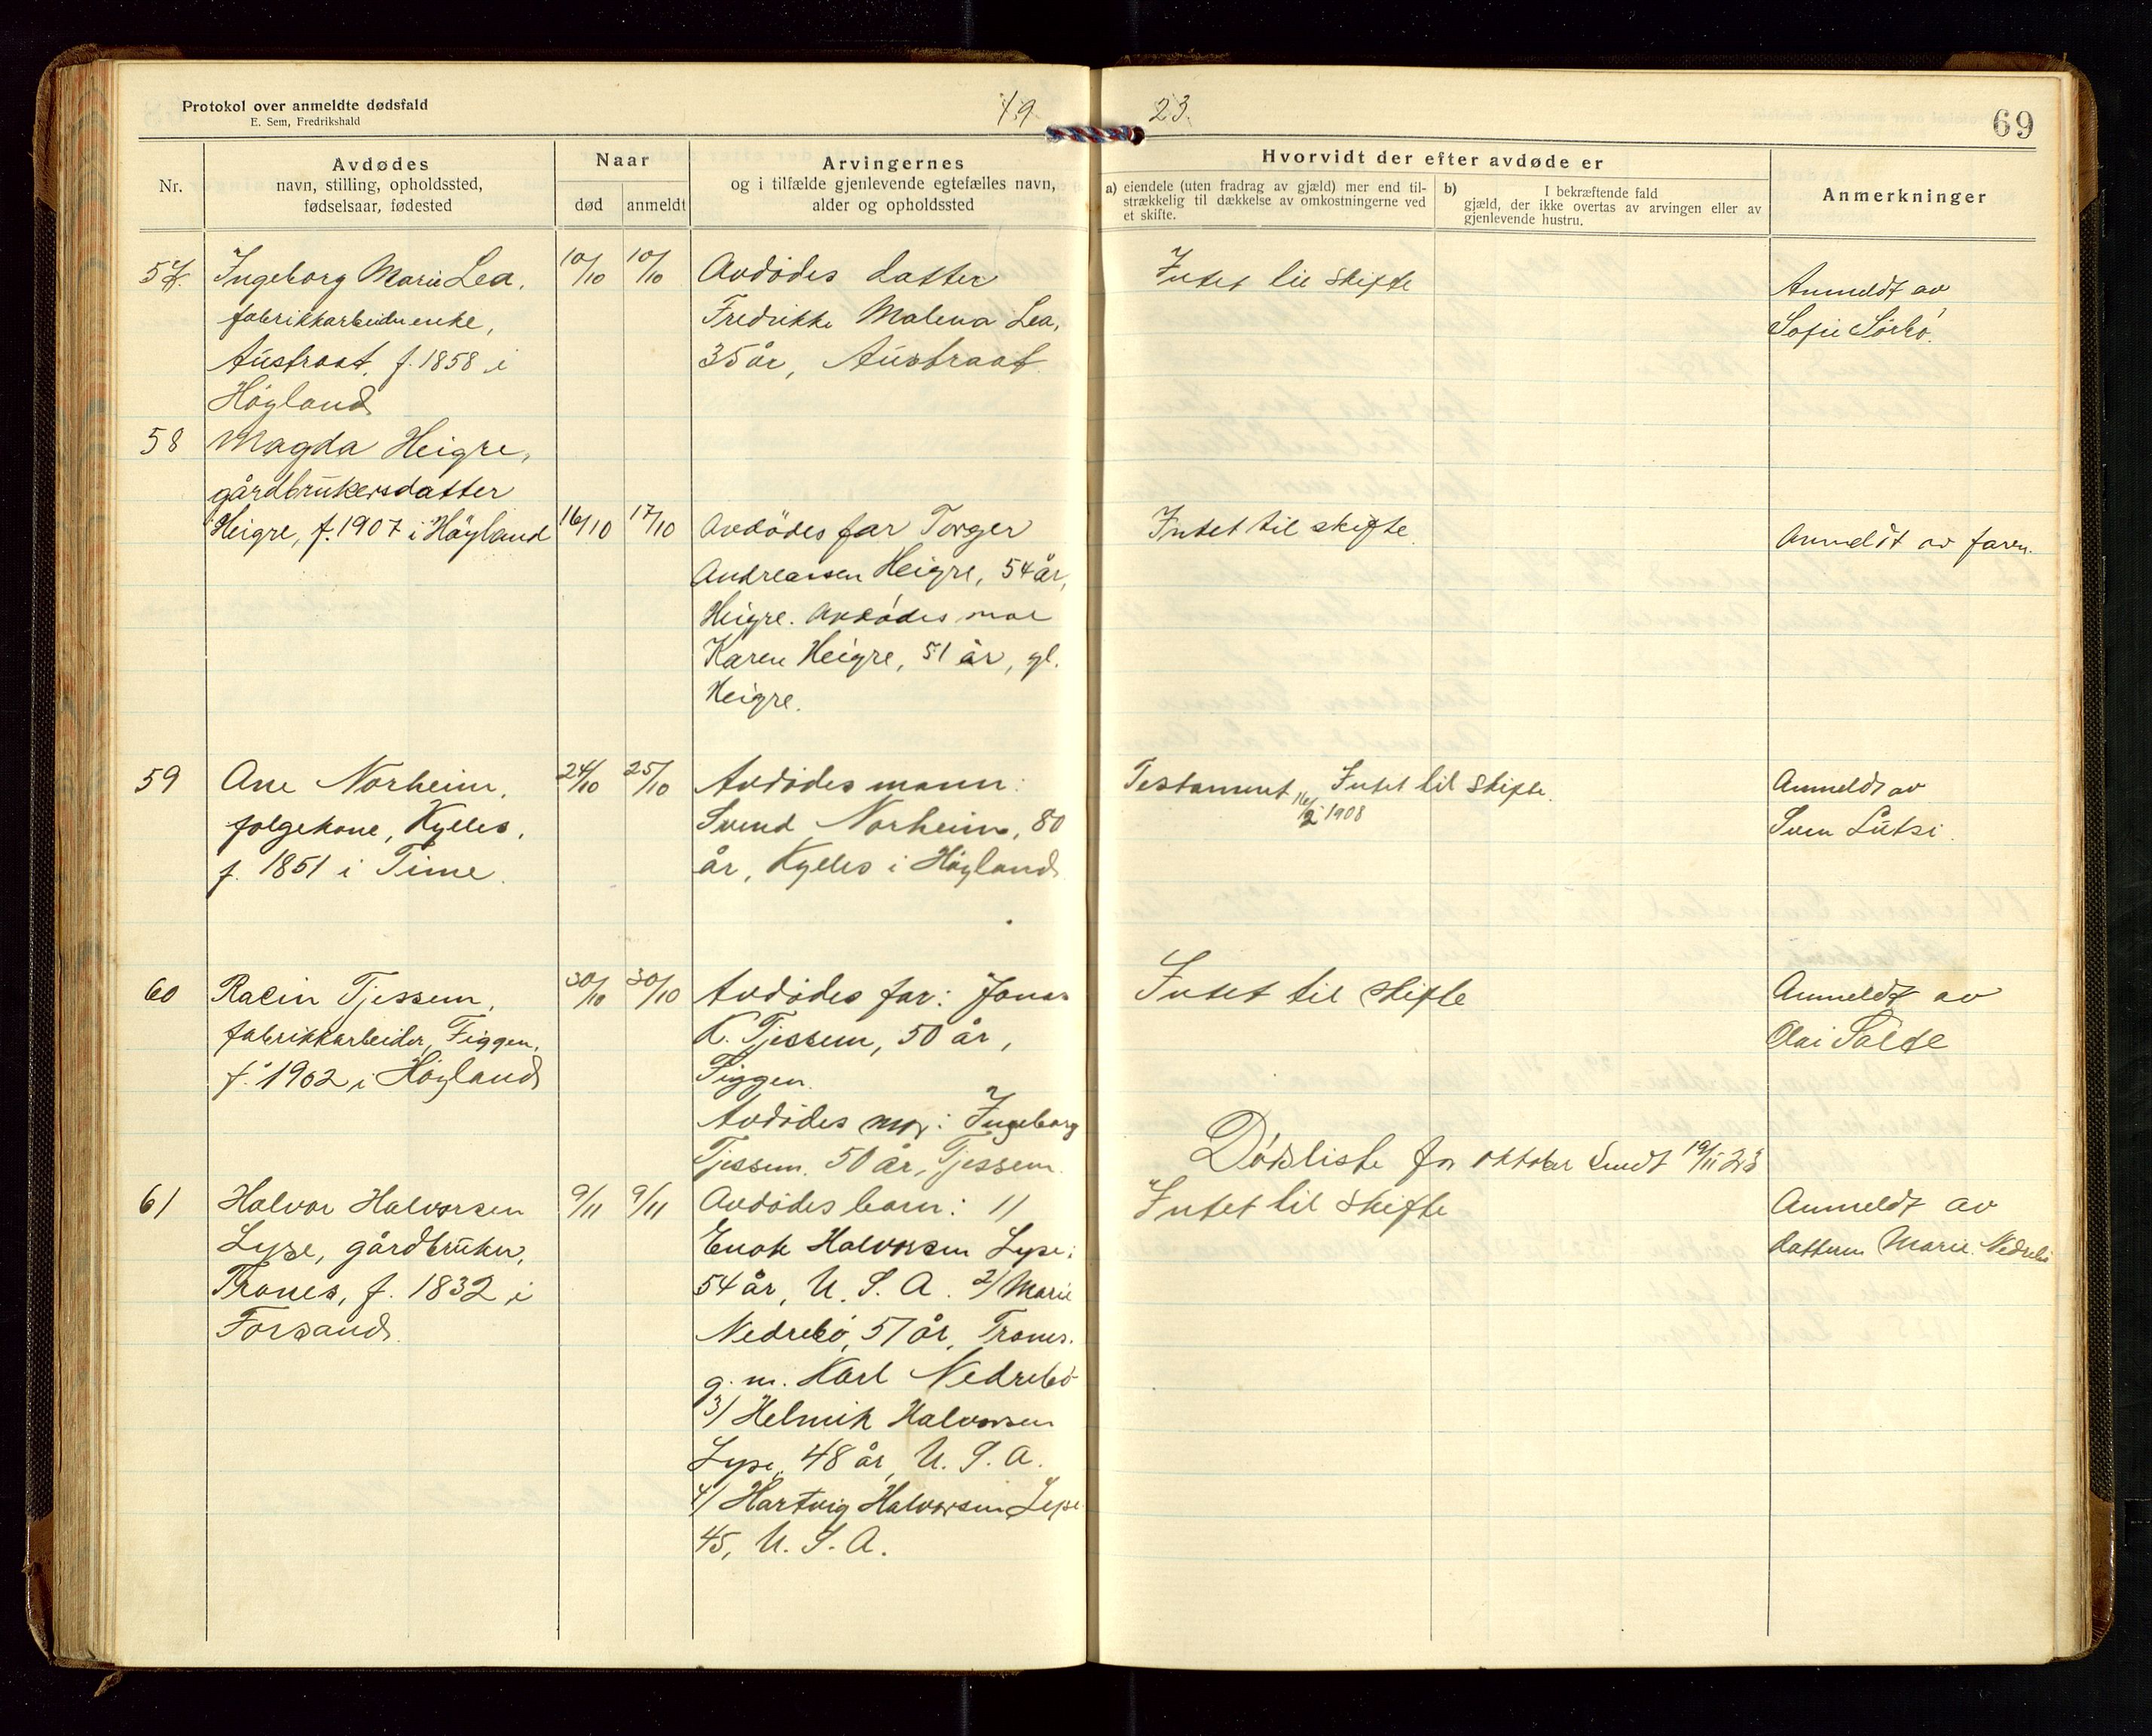 Protokol over anmeldte dødsfald
E. Sem, Fredrikshald
19
23.
69
Nr.
Avdødes
navn, stilling, opholdssted,
fødselsaar, fødested
Naar
død
anmeldt
Arvingernes
og i tilfælde gjenlevende egtefælles navn,
alder og opholdssted
Hvorvidt der efter avdøde er
a) eiendele (uten fradrag av gjæld) mer end til-
strækkelig til dækkelse av omkostningerne ved
et skifte.
b) I bekræftende fald
gjæld, der ikke overtas av arvingen eller av
gjenlevende hustru.
Anmerkninger
57.
Ingeborg Marie Lea,
fabrikkarbeiderenke,
Austraat, f. 1858 i
Høyland
10/10
10/10
Avdødes datter
Fredrikke Malena Lea,
35 år, Austraat
Intet til skifte
Anmeldt av
Sofie Sørbø.
58
Magda Heigre,
gårdbrukersdatter
Heigre, f. 1907 i Høyland
16/10
17/10
Avdødes far Torger
Andreassen Heigre, 54 år,
Heigre. Avdødes mor
Karen Heigre, 51 år, gl.
Heigre.
Intet til skifte.
Anmeldt av faren.
59
Ane Norheim,
folgekone, Kylles,
f. 1851 i Time.
24/10
25/10
Avdødes mann:
Svend Norheim, 80
år, Kylles i Høyland
Testament 16/2 1908
Intet til skifte.
Anmeldt av
Sven Lutsi.
60
Racin Tjessem,
fabrikkarbeider, Figgen,
f. 1902 i Høyland
30/10
30/10
Avdødes far: Jonas
K. Tjessem, 50 år,
Figgen.
Avdødes mor: Ingeborg
Tjessem. 50 år, Tjessem.
Intet til skifte
Anmeldt av
Olai
Dødsliste for oktober sendt 19/11 23
61
Halvor Halvorsen
Lyse, gårdbruker,
Trones, f. 1832 i
Forsand.
9/11
9/11
Avdødes barn: 1/
Enok Halvorsen Lyse,
54 år, U. S. A. 2/ Marie
Nedrebø, 57 år, Trones.
g. m. Karl Nedrebø
3/ Helmik Halvorsen
Lyse, 48 år, U. S. A.
4/ Hartvig Halvorsen Lyse
45, U. S. A.
Intet til skifte
Anmeldt av
datteren Marie Nedrebø